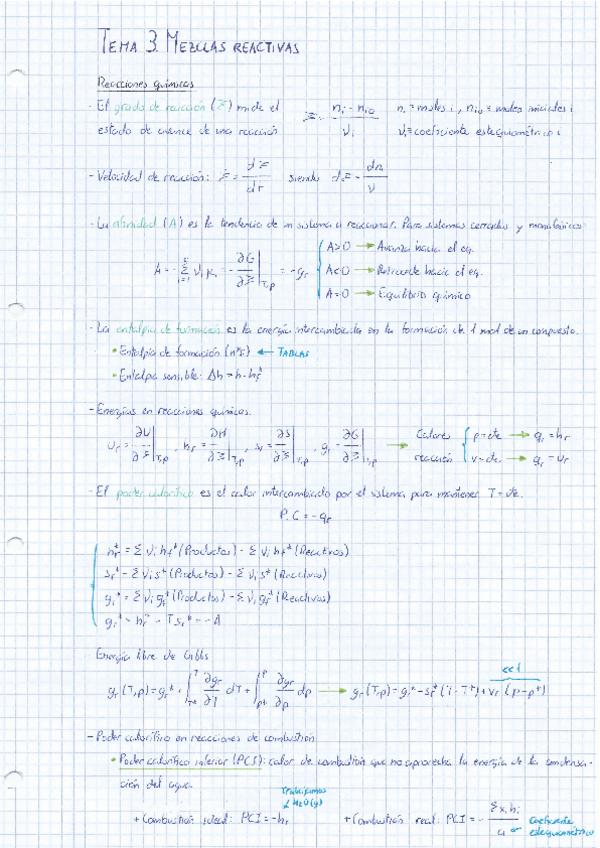 TEMA 3. MEZCLAS REACTIVAS
Reacciones químicas
- El grado de reacción (ξ) mide el estado de avance de una reacción
ξ = (n_i - n_i0) / ν_i
n_i = moles i, n_i0 = moles iniciales i
ν_i = coeficiente estequiométrico i
- Velocidad de reacción: ξ̇ = dξ/dτ siendo dξ = dn/ν
- La afinidad (A) es la tendencia de un sistema a reaccionar. Para sistemas cerrados y monofásicos:
A = - Σ ν_i μ_i = - ∂G/∂ξ |T,p = -g_r
A>0 → Avanza hacia el eq.
A<0 → Retrocede hacia el eq.
A=0 → Equilibrio químico
- La entalpía de formación es la energía intercambiada en la formación de 1 mol de un compuesto.
• Entalpía de formación (h°f) ← TABLAS
• Entalpía sensible: Δh = h - h°f
- Energías en reacciones químicas.
u_r = ∂U/∂ξ |T,p , h_r = ∂H/∂ξ |T,p , s_r = ∂S/∂ξ |T,p , g_r = ∂G/∂ξ |T,p → Calores reacción
p = cte → q_r = h_r
v = cte → q_r = u_r
- El poder calorífico es el calor intercambiado por el sistema para mantener T = cte.
P.C = -q_r
h_r* = Σ ν_i h_f* (Productos) - Σ ν_i h_f* (Reactivos)
s_r* = Σ ν_i s* (Productos) - Σ ν_i s* (Reactivos)
g_r* = Σ ν_i g_f* (Productos) - Σ ν_i g_f* (Reactivos)
g_r* = h_r* - T s_r* = -A
Energía libre de Gibbs
<<1
g_r (T,p) = g_r* + ∫_T*^T ∂g_r/∂T dT + ∫_p*^p ∂g_r/∂p dp → g_r (T,p) = g_r* - s_r* (T - T*) + v_r (p - p*)
- Poder calorífico en reacciones de combustión
• Poder calorífico inferior (PCI): calor de combustión que no aprovecha la energía de la condensa-
ción del agua.
Trabajamos
H2O(g)
+ Combustión ideal: PCI = -h_r
+ Combustión real: PCI = - Σ x_i h_i / a
Coeficiente
estequiométrico